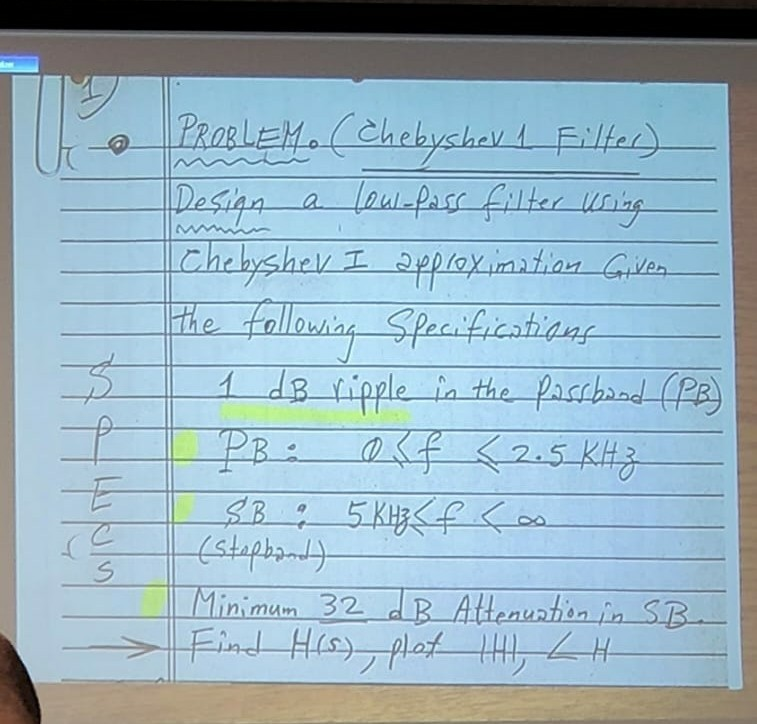 1
PROBLEM. (Chebyshev 1 Filter)
Design a low-pass filter using
Chebyshev I approximation Given
the following Specifications
S 1 dB ripple in the Passband (PB)
P PB: 0 ≤ f ≤ 2.5 KHz
E SB: 5 KHz < f < ∞
C (Stopband)
S
Minimum 32 dB Attenuation in SB.
→ Find H(s), plot |H|, ∠H